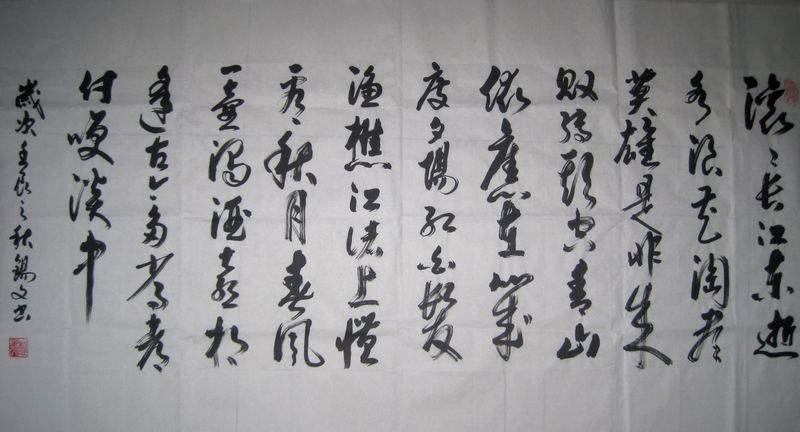 滚〻长江东逝
水浪花淘尽
英雄是非成
败转头空青山
依舊在几
度夕陽红白髮
渔樵江渚上惯
看秋月春风
一壶浊酒喜相
逢古今多少事都
付笑谈中
歲次壬辰之秋錫文书